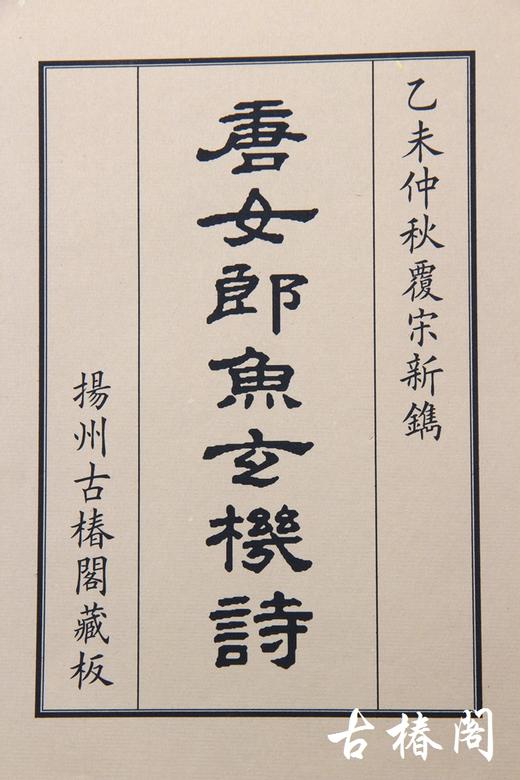 乙未仲秋覆宋新鐫
唐女郎魚玄機詩
揚州古椿閣藏板
古椿阁